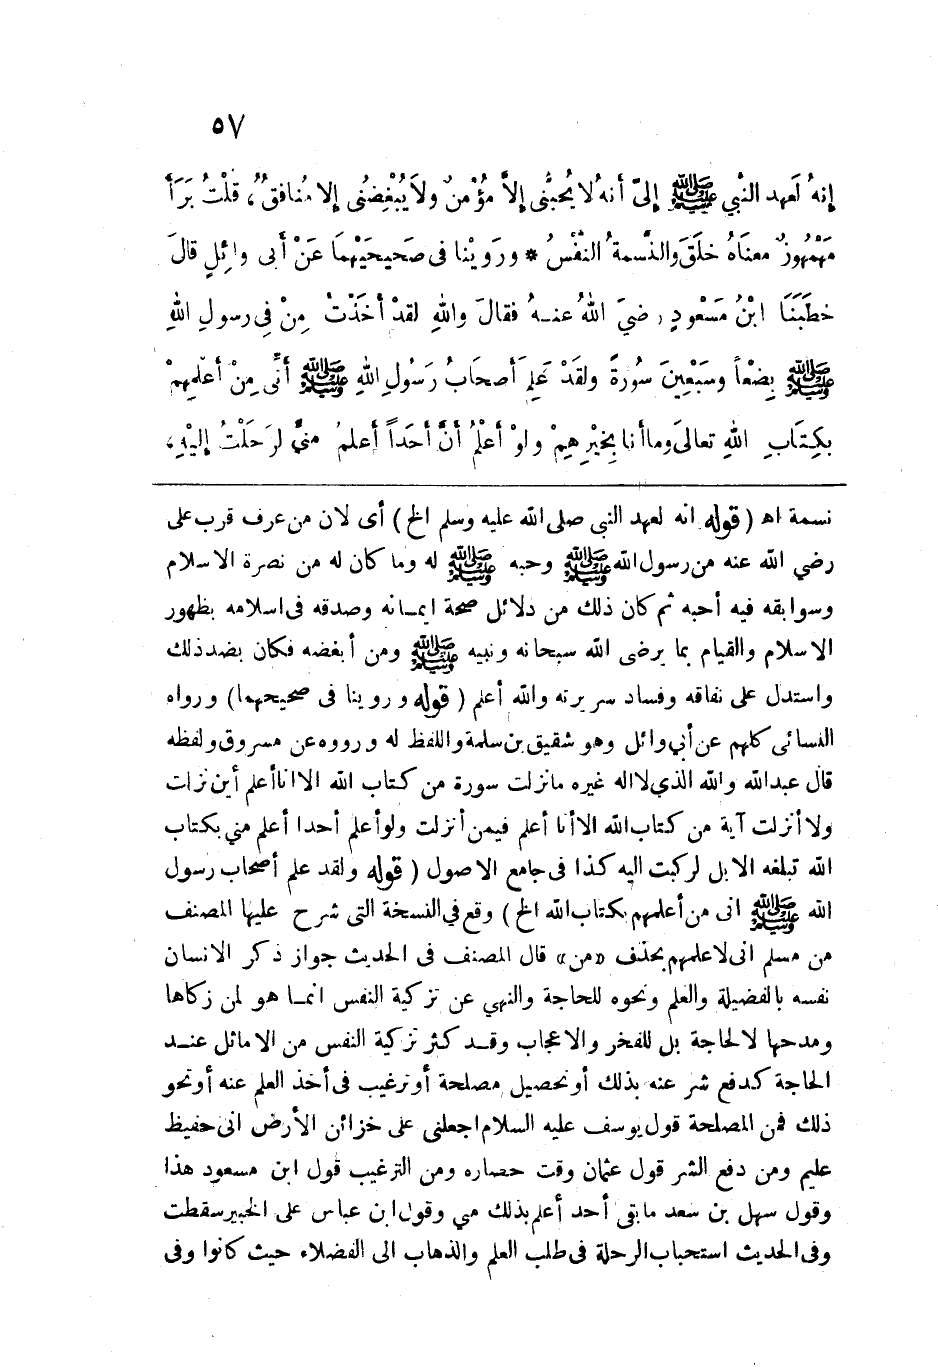 ٥٧
إِنهُ لَعهد النَّبي ﷺ إِلىّ أنهُ لا يُحبُّنى إلاَّ مؤْمنٌ ولاَ يُبْغِضُنى إلا مُنافقٌ ، قلْتُ بَرَأَ
مَهْمُوزٌ معناهُ خلَقَ والنَّسمةُ النَّفْسُ * ورَوَيْنا فى صَحيحَيْهِمَا عَنْ أبى وائِلٍ قالَ
خطَبَنَا ابْنُ مَسْعودٍ رضيَ اللهُ عنـهُ فقالَ واللهِ لقدْ أخَذْتُ مِنْ فِى رسولِ اللهِ
ﷺ بِضْعاً وسَبْعِينَ سُورةً ولقَدْ عَلِمَ أصحَابُ رَسُولِ اللهِ ﷺ أنِّى مِنْ أعلَمِهِمْ
بكِتَابِ اللهِ تعالَى وما أنا بِخيْرِهِمْ ولوْ أعْلمُ أنَّ أحَداً أعلمُ منِّي لرَحَلْتُ إليْهِ ،
نسمة اه ( قوله انه لعهد النبى صلى الله عليه وسلم الخ ) أى لان من عرف قرب على
رضي الله عنه من رسول الله ﷺ وحبه ﷺ له وما كان له من نصرة الاسلام
وسوابقه فيه أحبه ثم كان ذلك من دلائل صحة ايمـانه وصدقه فى اسلامه بظهور
الاسلام والقيام بما يرضى الله سبحانه ونبيه ﷺ ومن أبغضه فكان بضد ذلك
واستدل على نفاقه وفساد سريرته والله أعلم ( قوله وروينا فى صحيحيهما ) ورواه
النسائى كلهم عن أبي وائل وهو شقيق بن سلمة واللفظ له ورووه عن مسروق ولفظه
قال عبدالله والله الذي لا اله غيره مانزلت سورة من كتاب الله الا انا أعلم أين نزلت
ولا أنزلت آية من كتاب الله الا أنا أعلم فيمن أنزلت ولو أعلم أحدا أعلم مني بكتاب
الله تبلغه الابل لركبت اليه كذا فى جامع الاصول ( قوله ولقد علم أصحاب رسول
الله ﷺ انى من أعلمهم بكتاب الله الخ ) وقع في النسخة التى شرح عليها المصنف
من مسلم انى لاعلمهم بحذف «من» قال المصنف فى الحديث جواز ذكر الانسان
نفسه بالفضيلة والعلم ونحوه للحاجة والنهي عن تزكية النفس انمـا هو لمن زكاها
ومدحها لا لحاجة بل للفخر والاعجاب وقـد كثر تزكية النفس من الاماثل عنـد
الحاجة كدفع شر عنه بذلك أو تحصيل مصلحة أو ترغيب فى أخذ العلم عنه أو نحو
ذلك فمن المصلحة قول يوسف عليه السلام اجعلنى على خزائن الأرض انى حفيظ
عليم ومن دفع الشر قول عثمان وقت حصاره ومن الترغيب قول ابن مسعود هذا
وقول سهل بن سعد مابقى أحد أعلم بذلك مني وقول ابن عباس على الخبير سقطت
وفى الحديث استحباب الرحلة فى طلب العلم والذهاب الى الفضلاء حيث كانوا وفى